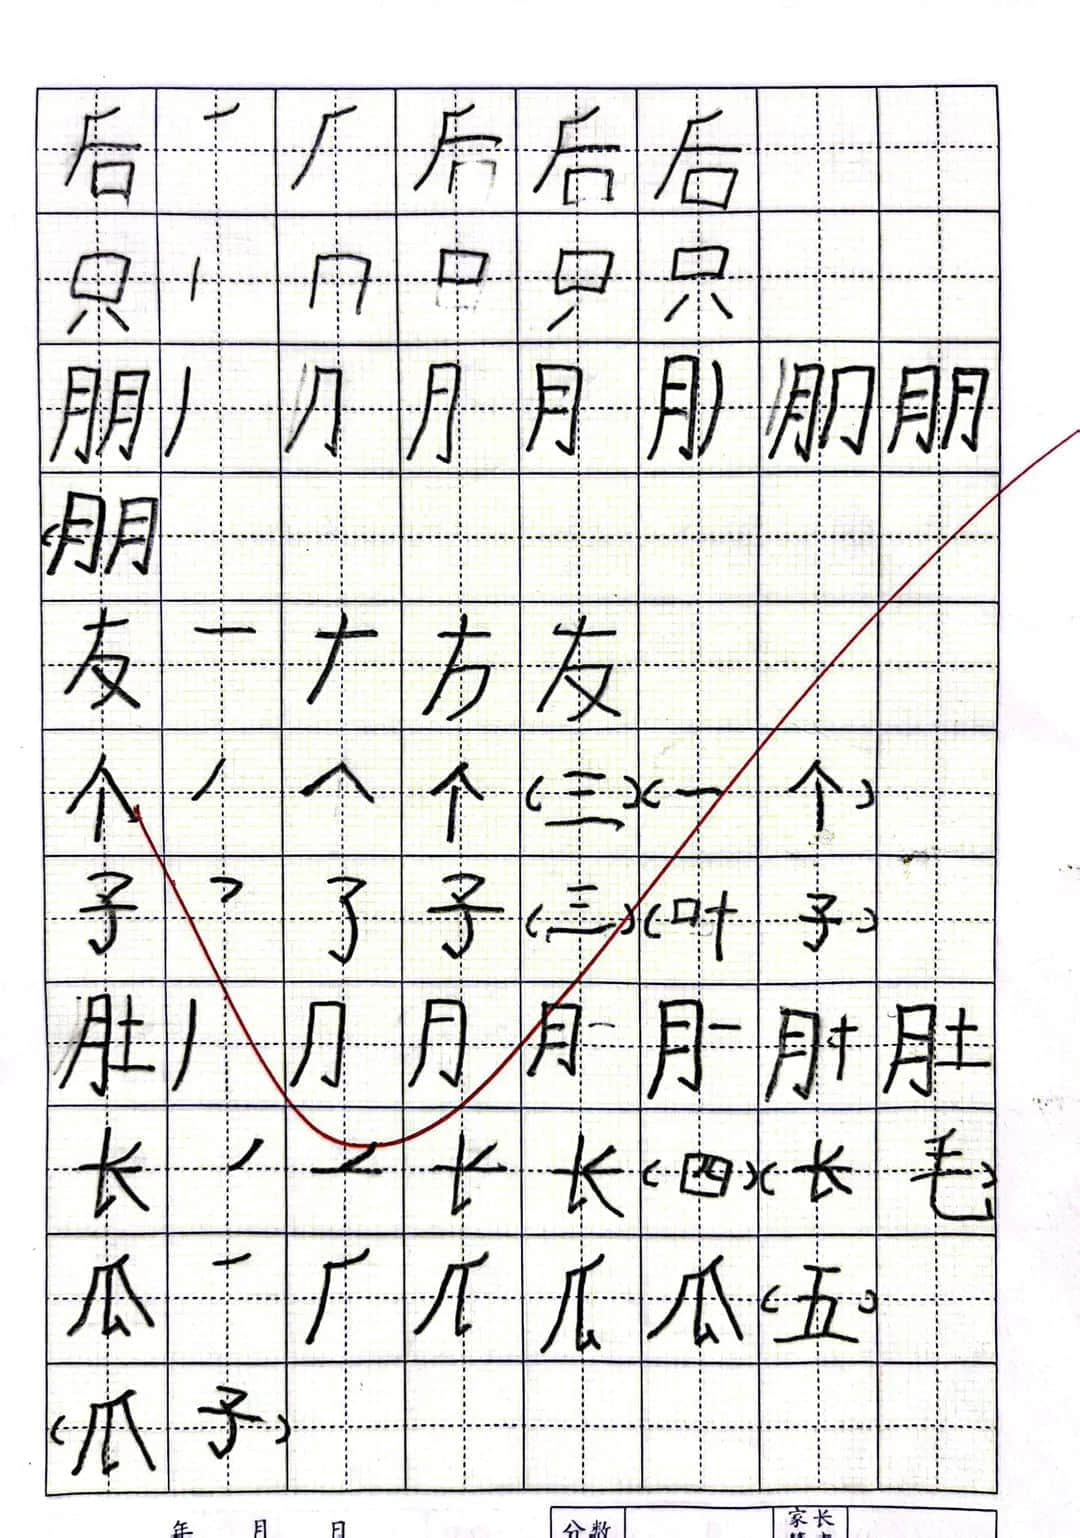 后 丿 厂 后 后 后
只 丨 冂 口 只 只
朋 丿 刀 月 月 朋 朋
(朋
友 一 ナ 方 友
个 丿 人 个 (三) (一 个)
子 乛 了 子 (三) (叶 子)
肚 丿 月 月 月 肚
长 丿 长 长 (四) (长 毛)
瓜 丿 厂 瓜 瓜 (五)
(瓜 子)
年 月 日 分数 家长